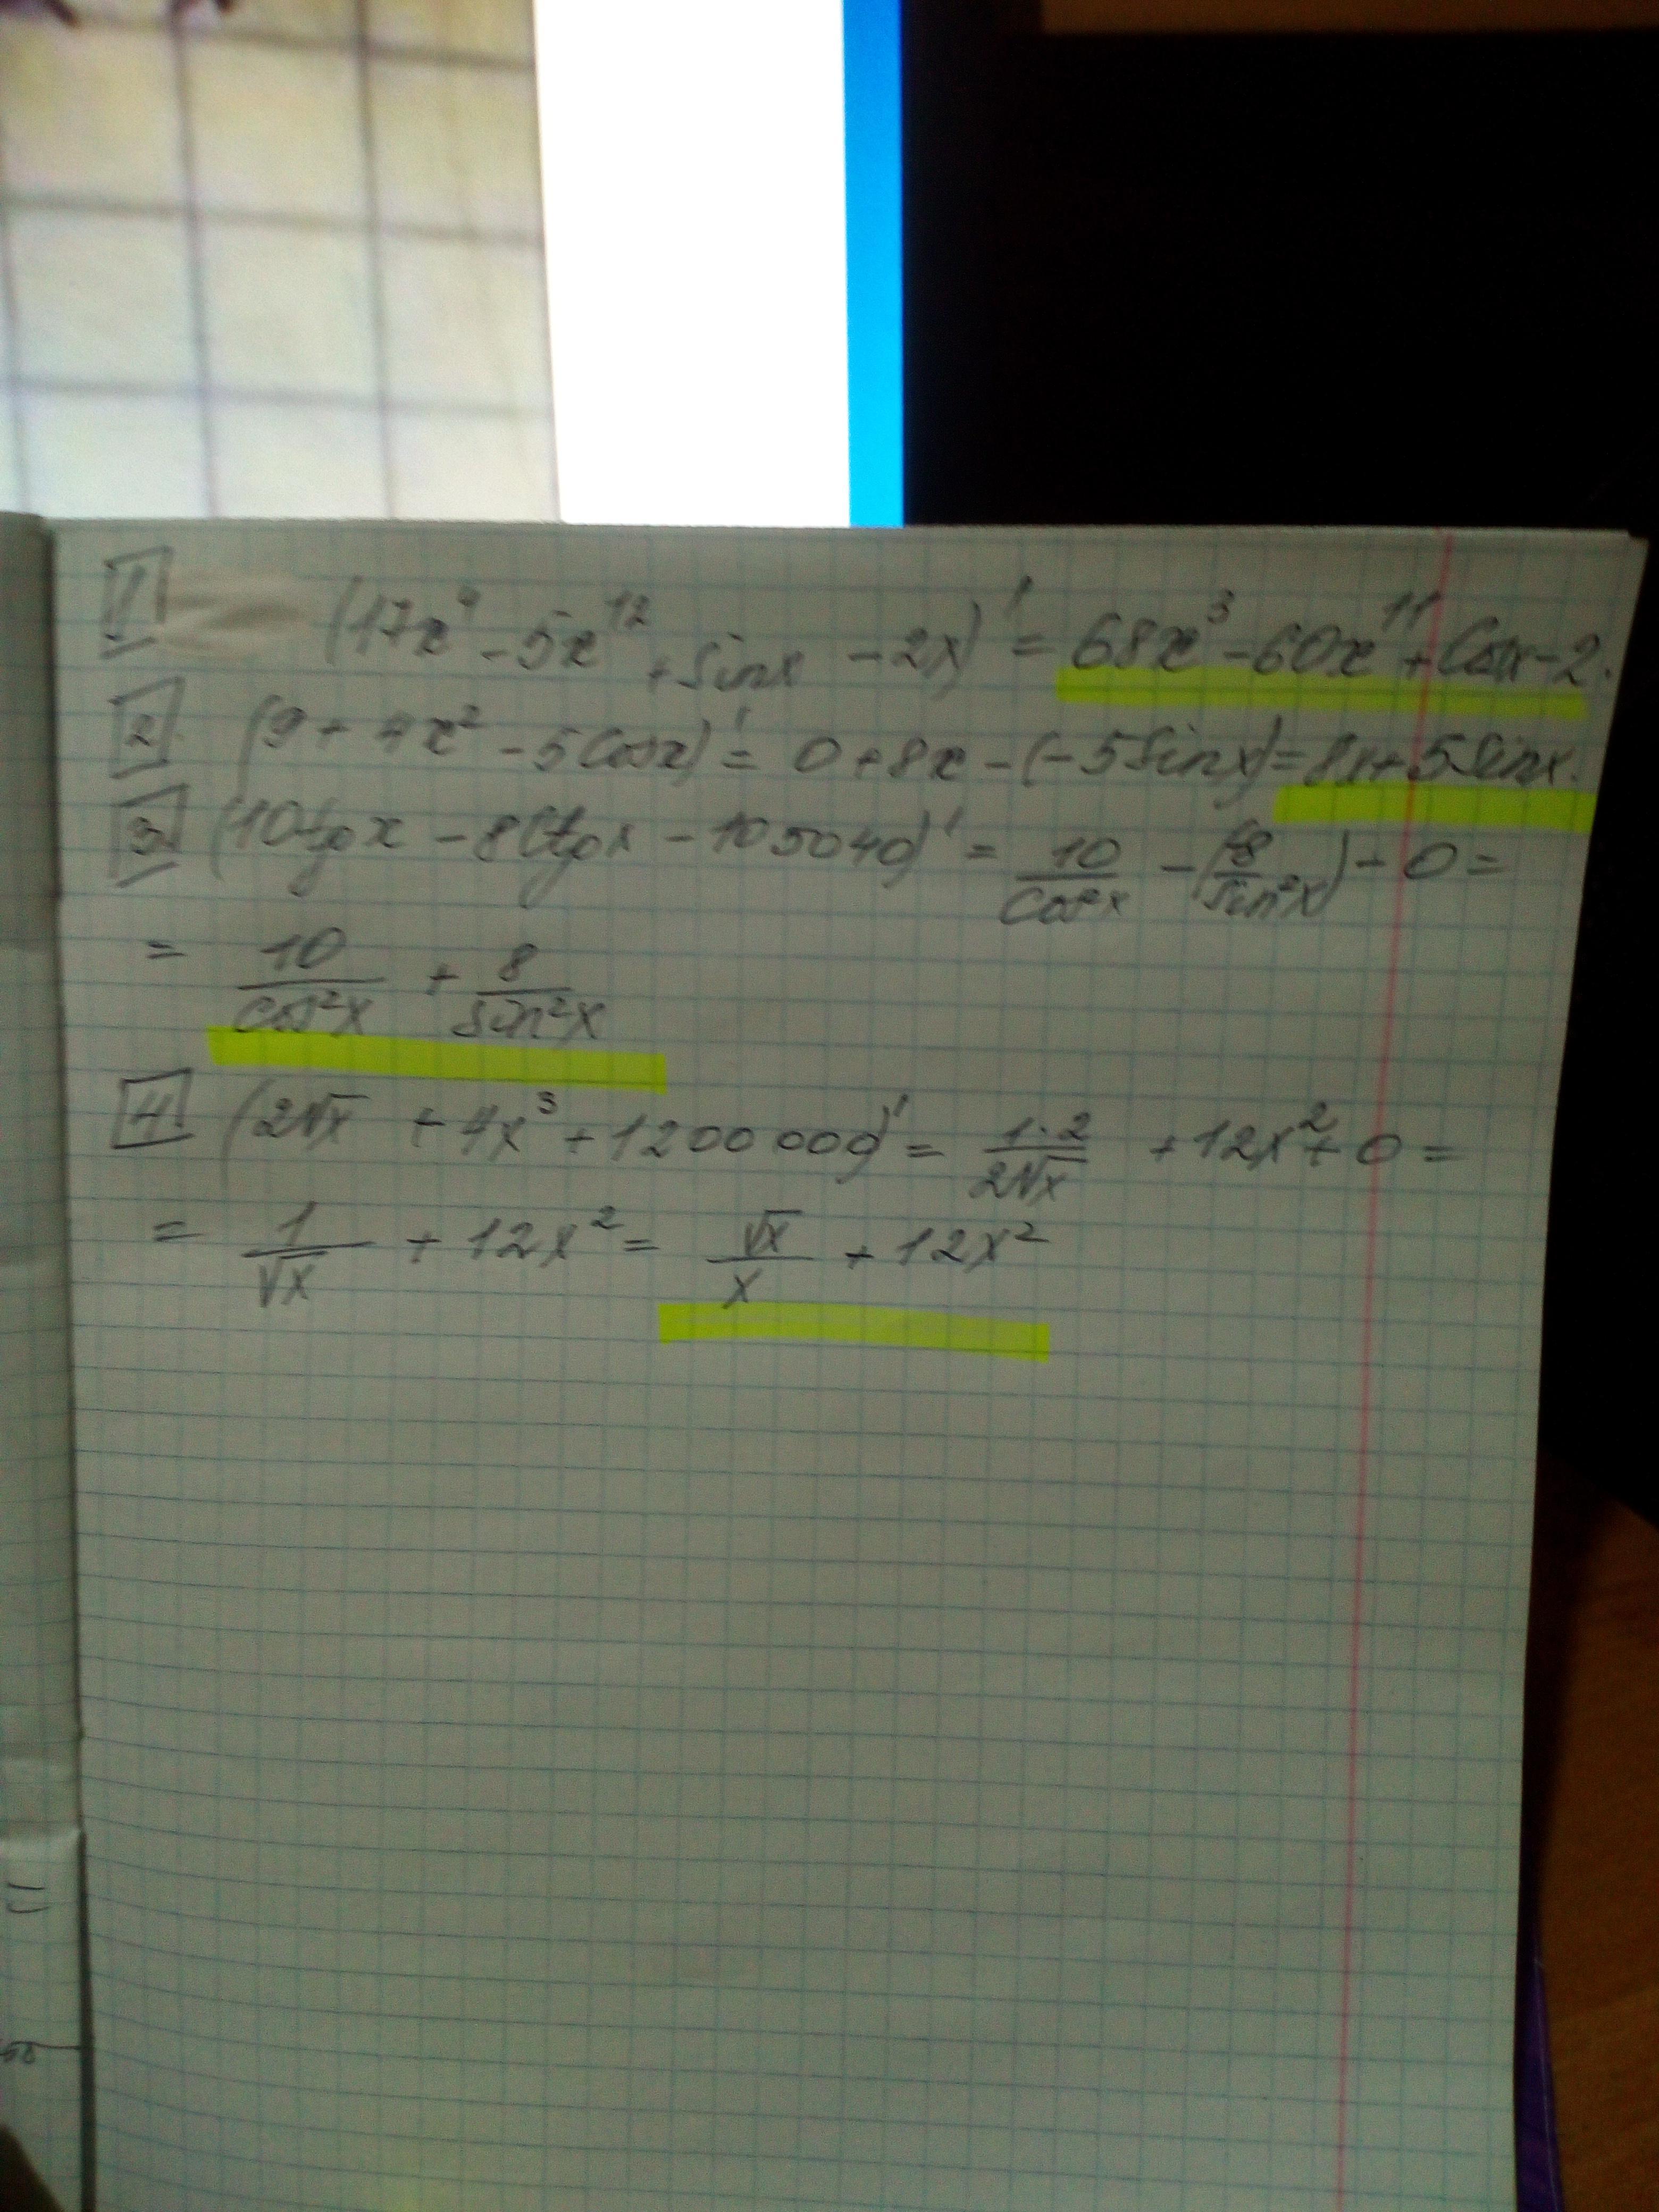 1 (17x⁴ - 5x¹² + sinx - 2x)' = 68x³ - 60x¹¹ + Cosx - 2.
2. (9 + 4x² - 5Cosx)' = 0 + 8x - (-5Sinx) = 8x + 5Sinx.
3 (10tgx - 8Ctgx - 105040)' = 10/Cos²x - (-8/Sin²x) - 0 =
= 10/Cos²x + 8/Sin²x
4 (2√x + 4x³ + 1200000)' = 1·2/2√x + 12x² + 0 =
= 1/√x + 12x² = √x/x + 12x²